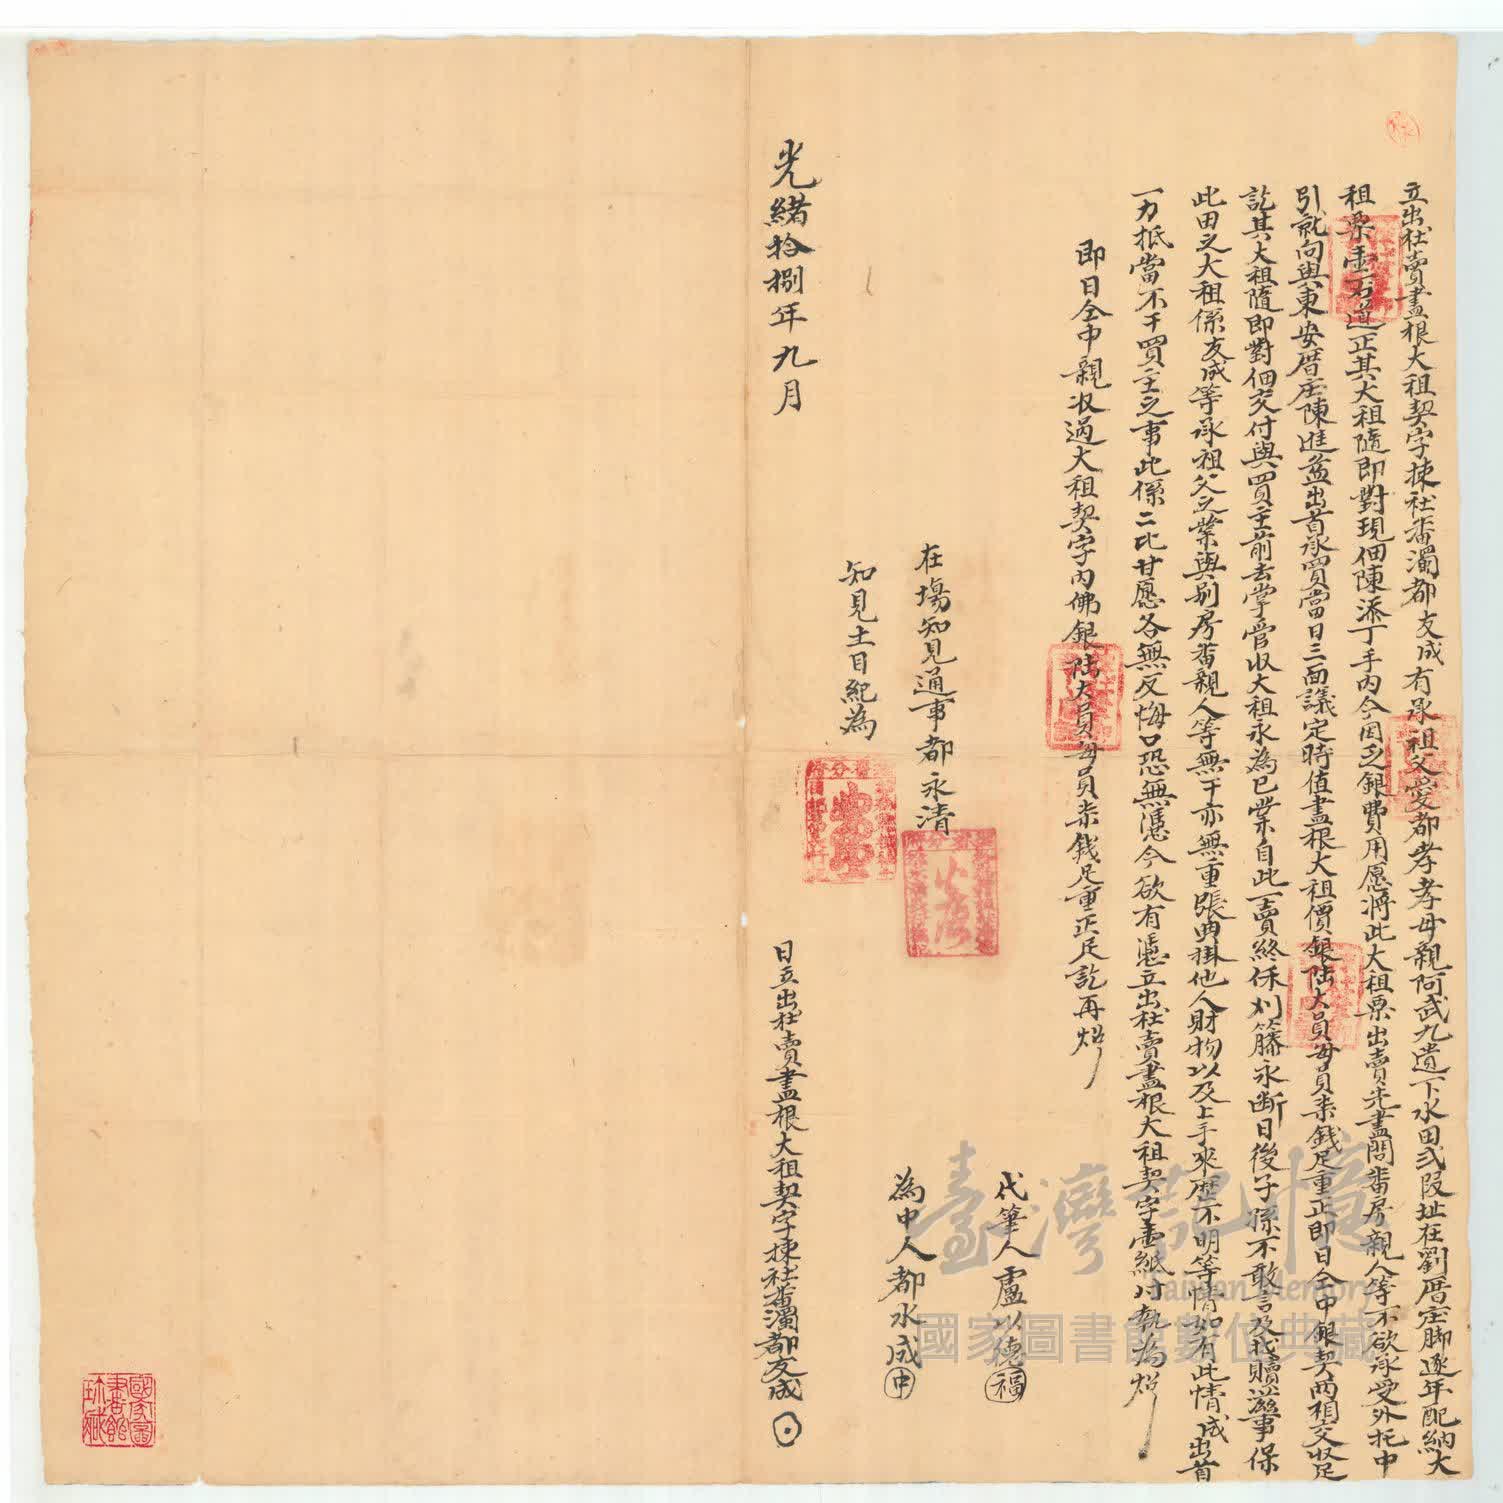 立出杜賣盡根大租契字捒社番濁都友成有承祖父愛都孝孝毋親阿武九遺下水田弍叚址在劉厝庄脚逐年配納大
租粟壹石道正其大租隨即對現佃陳添丁手內今因乏銀費用愿將此大租粟出賣先盡問番房親人等不欲承受外托中
引就向與東安厝庄陳進益出首承買當日三面議定時值盡根大租價銀陸大員每員柒錢足重正即日仝中銀契兩相交收足
訖其大租隨即對佃交付與買主前去掌管收大租永為己業自此一賣終休刈籐永斷日後子孫不敢言及找贖滋事保
此田之大租係友成等承祖父之業與别房番親人等無干亦無重張典掛他人財物以及上手來歷不明等情如有此情成出首
一力抵當不干買主之事此係二比甘愿各無反悔口恐無憑今欲有憑立出杜賣盡根大租契字壹紙付執為炤
即日仝中親收過大租契字內佛銀陸大員每員柒錢足重正足訖再炤
代筆人盧以德福
為中人都水成中
在塲知見通事都永清
知見土目紀為
光緒拾捌年九月
日立出杜賣盡根大租契字捒社番濁都友成
國家圖書館珍藏
臺灣記憶
Taiwan Memory
國家圖書館數位典藏